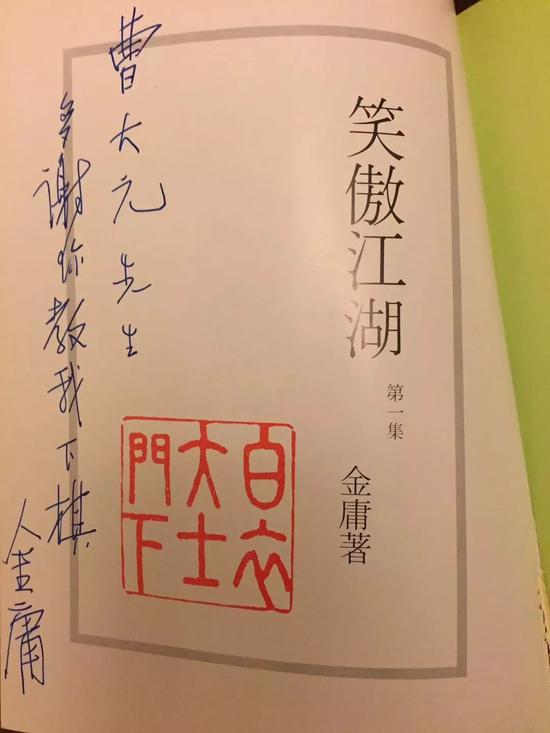 笑傲江湖
第一集
金庸著
白衣
大士
門下
曹大元先生
多謝你教我下棋
金庸